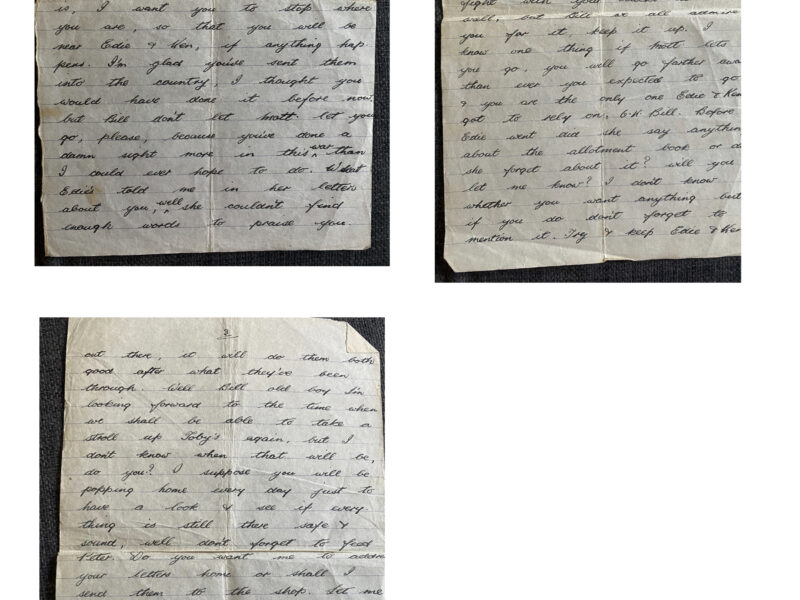 is, I want you to stop where
you are, so that you will be
near Edie & Ken, if anything hap-
pens. I'm glad you've sent them
into the country, I thought you
would have done it before now,
but Bill don't let Mott let you
go, please, because you've done a
damn sight more in this war than
I could ever hope to do. What
Edie's told me in her letters
about you, well she couldn't find
enough words to praise you.
well, but Bill we all admire
you for it, keep it up. I
know one thing if Mott lets
you go, you will go farther awa
than ever you expected to go
& you are the only one Edie & Ken
got to rely on, O.K. Bill. Before
Edie went did she say anythin
about the allotment book or di
she forget about it? will you
let me know? I don't know
whether you want anything but
if you do don't forget to
mention it. Try & keep Edie & Ken
3
out there, it will do them both
good after what they've been
through. Well Bill old boy I'm
looking forward to the time when
we shall be able to take a
stroll up Toby's again, but I
don't know when that will be,
do you? I suppose you will be
popping home every day just to
have a look & see if every-
thing is still there safe &
sound, well don't forget to feed
Peter. Do you want me to addre
your letters home or shall I
send them to the shop. Let me